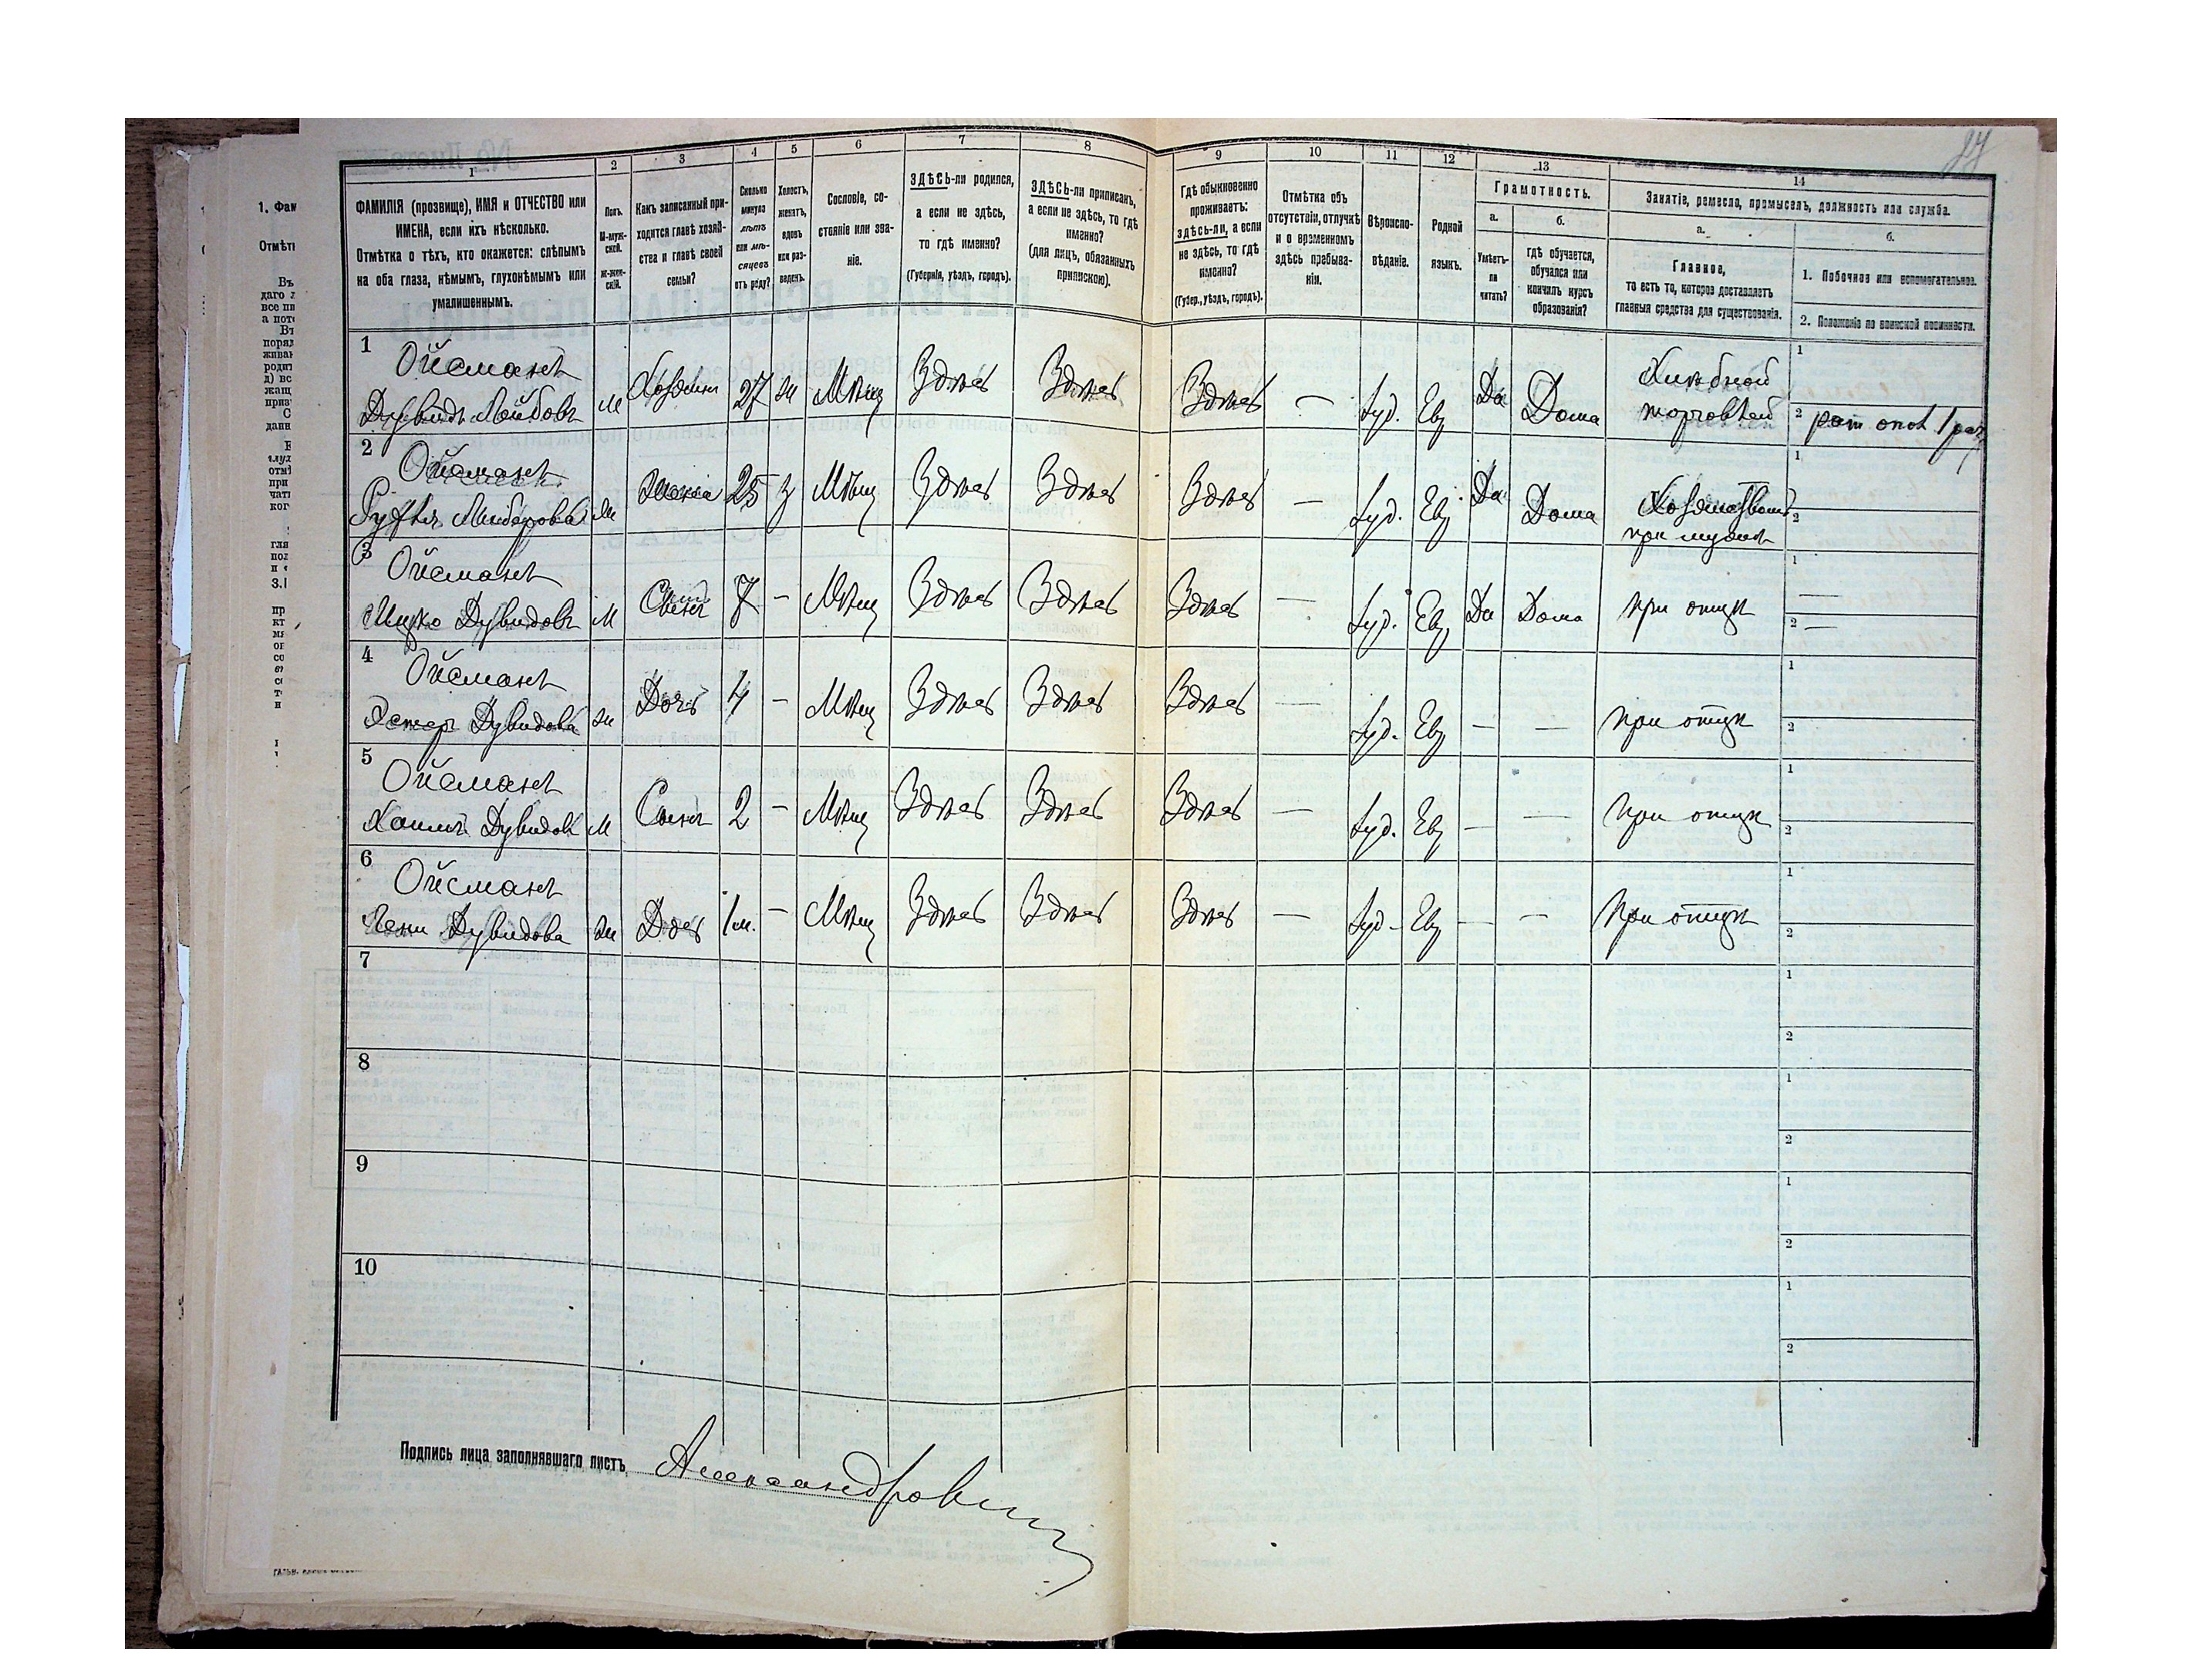 27
1 2 3 4 5 6 7 8 9 10 11 12 13 14
ФАМИЛІЯ (прозвище), ИМЯ и ОТЧЕСТВО или
ИМЕНА, если ихъ нѣсколько.
Отмѣтка о тѣхъ, кто окажется: слѣпымъ
на оба глаза, нѣмымъ, глухонѣмымъ или
умалишеннымъ.
Полъ.
М-муж-
ской.
ж-жен-
скій.
Какъ записанный при-
ходится главѣ хозяй-
ства и главѣ своей
семьи?
Сколько
минуло
лѣтъ
или мѣ-
сяцевъ
отъ роду?
Холостъ,
женатъ,
вдовъ
или раз-
веденъ.
Сословіе, со-
стояніе или зва-
ніе.
ЗДѢСЬ-ли родился,
а если не здѣсь,
то гдѣ именно?
(Губернія, уѣздъ, городъ).
ЗДѢСЬ-ли приписанъ,
а если не здѣсь, то гдѣ
именно?
(для лицъ, обязанныхъ
припискою).
Гдѣ обыкновенно
проживаетъ:
здѣсь-ли, а если
не здѣсь, то гдѣ
именно?
(Губер., уѣздъ, городъ).
Отмѣтка объ
отсутствіи, отлучкѣ
и о временномъ
здѣсь пребыва-
ніи.
Вѣроиспо-
вѣданіе.
Родной
языкъ.
Грамотность.
а.
Умѣетъ-
ли
читать?
б.
гдѣ обучается,
обучался или
кончилъ курсъ
образованія?
Занятіе, ремесло, промыселъ, должность или служба.
а.
Главное,
то есть то, которое доставляетъ
главныя средства для существованія.
б.
1. Побочное или вспомогательное.
2. Положеніе по воинской повинности.
1 Ойсманъ
Дувидъ Лейбовъ м Хозяинъ 27 ж Мѣщ Здѣсь Здѣсь Здѣсь — Іуд. Евр Да Дома Хлѣбной торговлей 1 2 рат опол 1 раз
2 Ойсманъ
м Жена 25 з Мѣщ Здѣсь Здѣсь Здѣсь — Іуд. Евр Да Дома при мужѣ 1 2
3 Ойсманъ
Ицко Дувидовъ м Сынъ 7 — Мѣщ Здѣсь Здѣсь Здѣсь — Іуд. Евр Да Дома при отцѣ 1 — 2 —
4 Ойсманъ
Эстеръ Дувидова ж Дочь 4 — Мѣщ Здѣсь Здѣсь Здѣсь — Іуд. Евр — — при отцѣ 1 2
5 Ойсманъ
Хаимъ Дувидов м Сынъ 2 — Мѣщ Здѣсь Здѣсь Здѣсь — Іуд. Евр — — при отцѣ 1 2
6 Ойсманъ
Дувидова ж Дочь 1 м. — Мѣщ Здѣсь Здѣсь Здѣсь — Іуд. Евр — — при отцѣ 1 2
7 1 2
8 1 2
9 1 2
10 1 2
Подпись лица заполнявшаго листъ Александрович